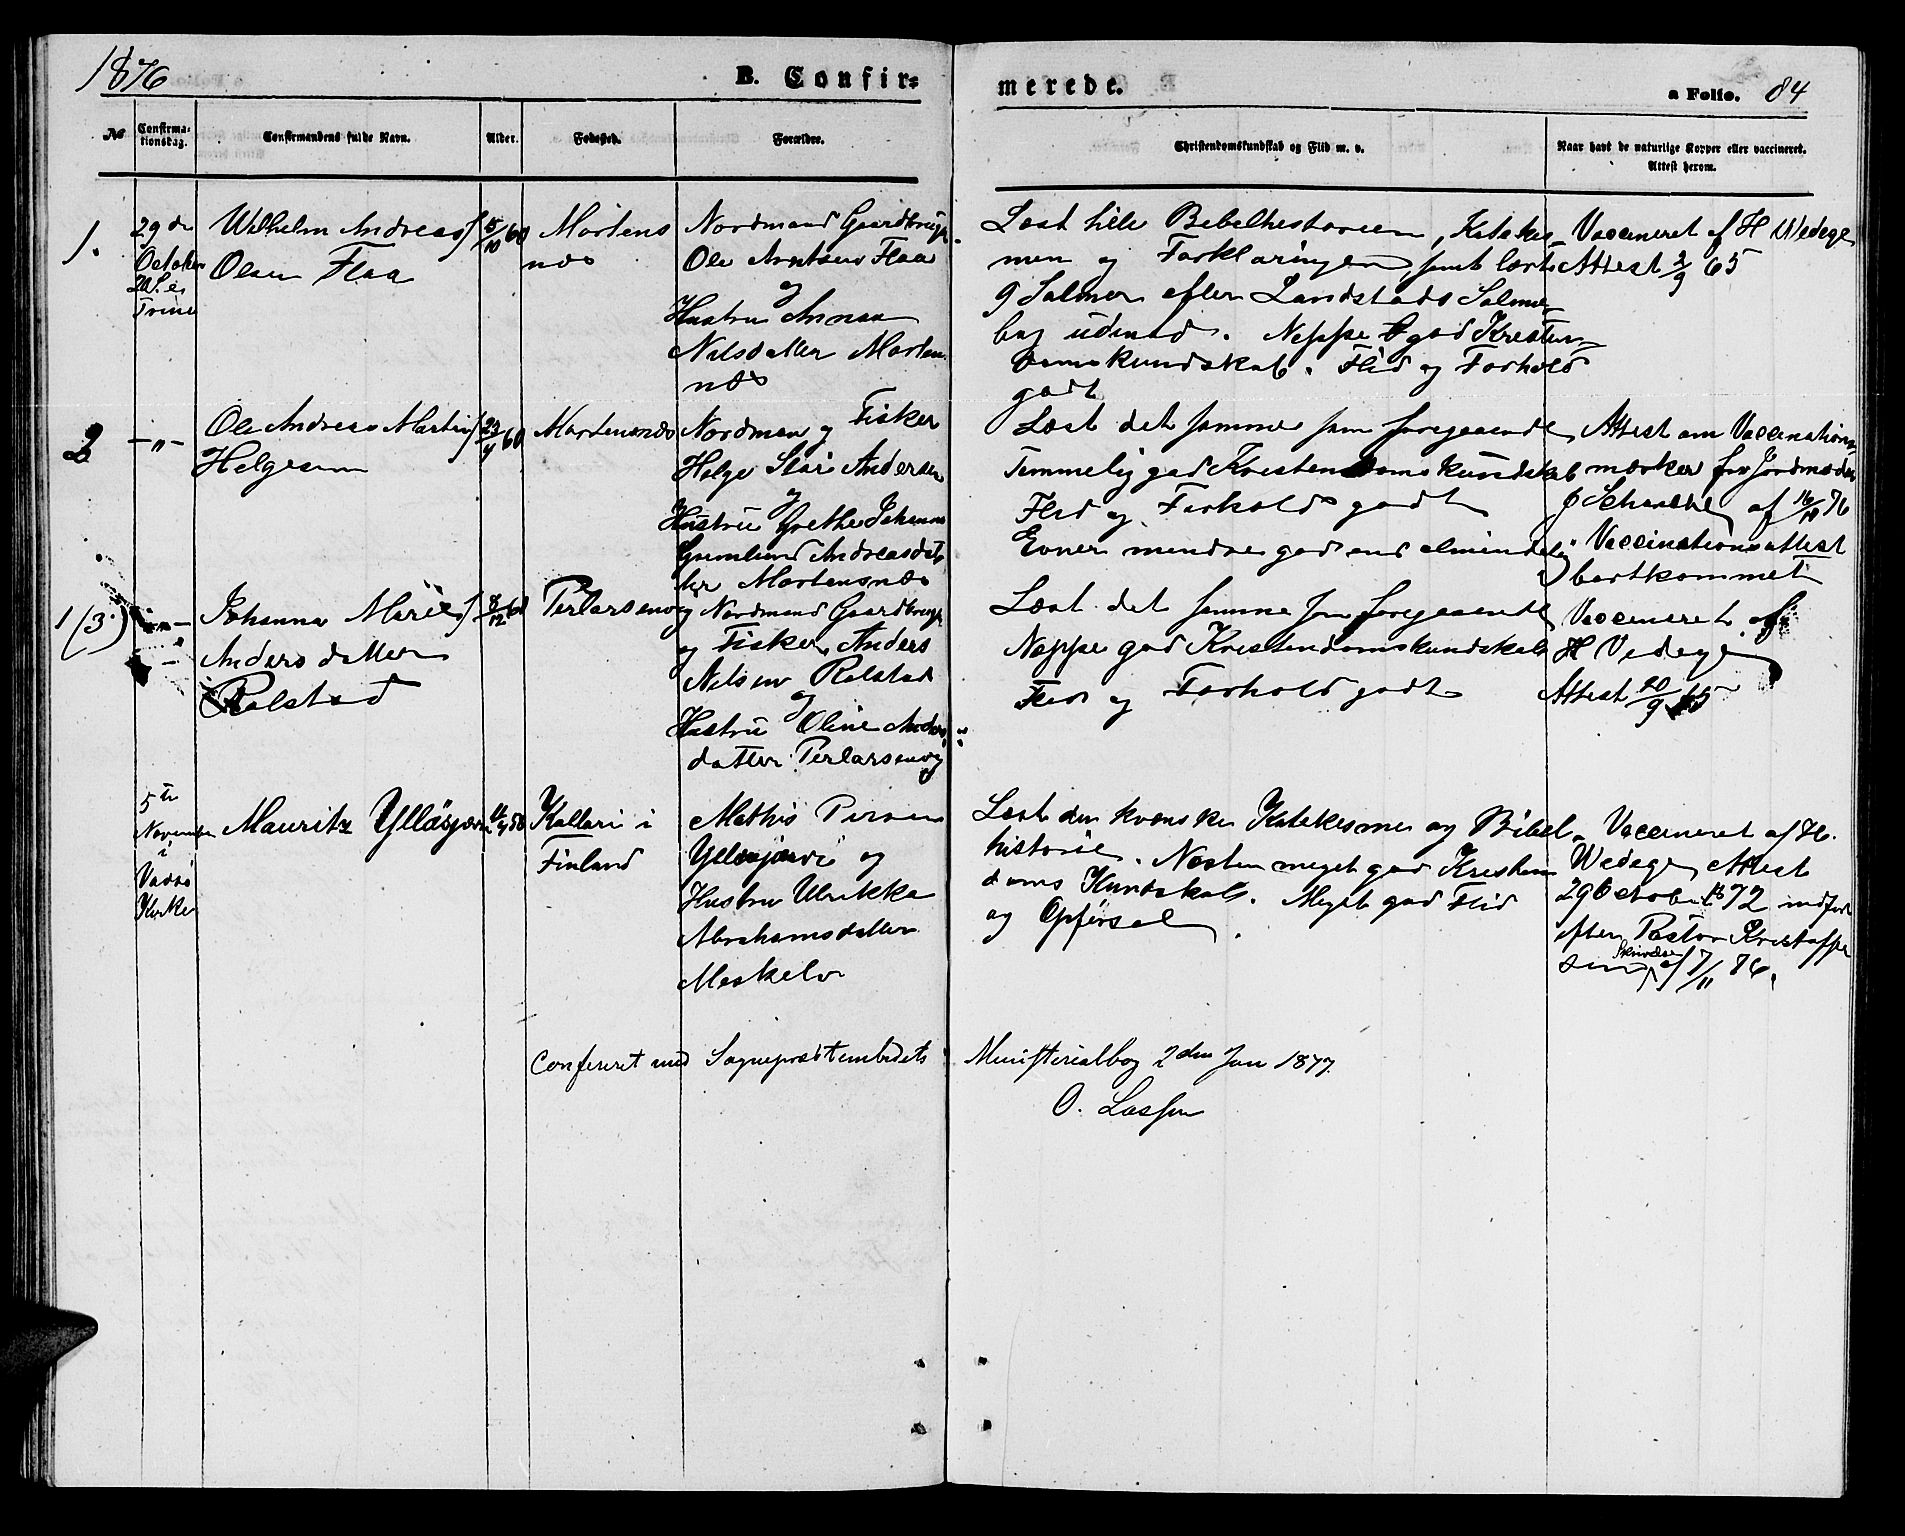 1876
B. Confir=
merede.
a Folio. 84
No
Confirma=
tionsdag.
Confirmandens fulde Navn.
Alder.
Fødested.
Forældre.
Christendomskundskab og Flid m. v.
Naar havt de naturlige Kopper eller vaccineret.
Attest herom.
1.
29de
October
20 S. e.
Trini
Wilhelm Andreas
Olsen Flaa
f 5/10 60
Mortens
næs
Nordmand Gaardbruger
Ole Arntsen Flaa
og
Hustru Anna
Nilsdatter Morten
næs
Læst hele Bibelhistorien, Katekis=
men og Forklaringen, samt lært
9 Salmer efter Landstads Salme
bog udenad. Neppe god Kristen=
domskundskab. Flid og Forhold
godt
Vaccineret af H Wedege
Attest 2/9 65
2
-"-
Ole Andreas Martin
Helgesen
f 23/4 60
Mortensnæs
Nordman og Fisker
Helge Andersen
og
Hustru Grethe Johanna
Andreasdat
ter Mortensnæs
Læst det samme som foregaaende
Temmelig god Kristendomskundskab
Flid og Forhold godt
Evner mindre god end almindelig
Attest om Vaccination=
mærker fra Jordmoder
af 16/10 76
Vaccinationsattest
bortkommet
1 (3.)
-"-
Johanna Marie
Andersdatter
Rolstad
f 8/12 60
Perlarsenvig
Nordmand Gaardbruger
og Fisker, Anders
Nilsen Rolstad
og
Hustru Oline Anders=
datter Perlarsenvig
Læst det samme som foregaaende
Neppe god Kristendomskundskab
Flid og Forhold godt
Vaccineret af
H Vedege
Attest 20/9 65
5te
November
i
Vadsö
Kirke
Mauritz Ylläsjærvi
58
Kollari i
Finland
Mathis Persen
Ylläsjærvi og
Hustru Ulrikka
Abrahamsdatter
Meskelv
Læst den kvenske Katekisme og Bibel=
historie. Næsten meget god Kristen
doms Kundskab. Meget god Flid
og Opførsel.
Vaccineret af H.
Wedege, Attest
29 October 1872 indført
efter Pastor Kristoffer
sens Skrivelse af 7/11 76.
Confereret med Sognepræstembedets Ministerialbog 2den Jan 1877.
O. Lassen